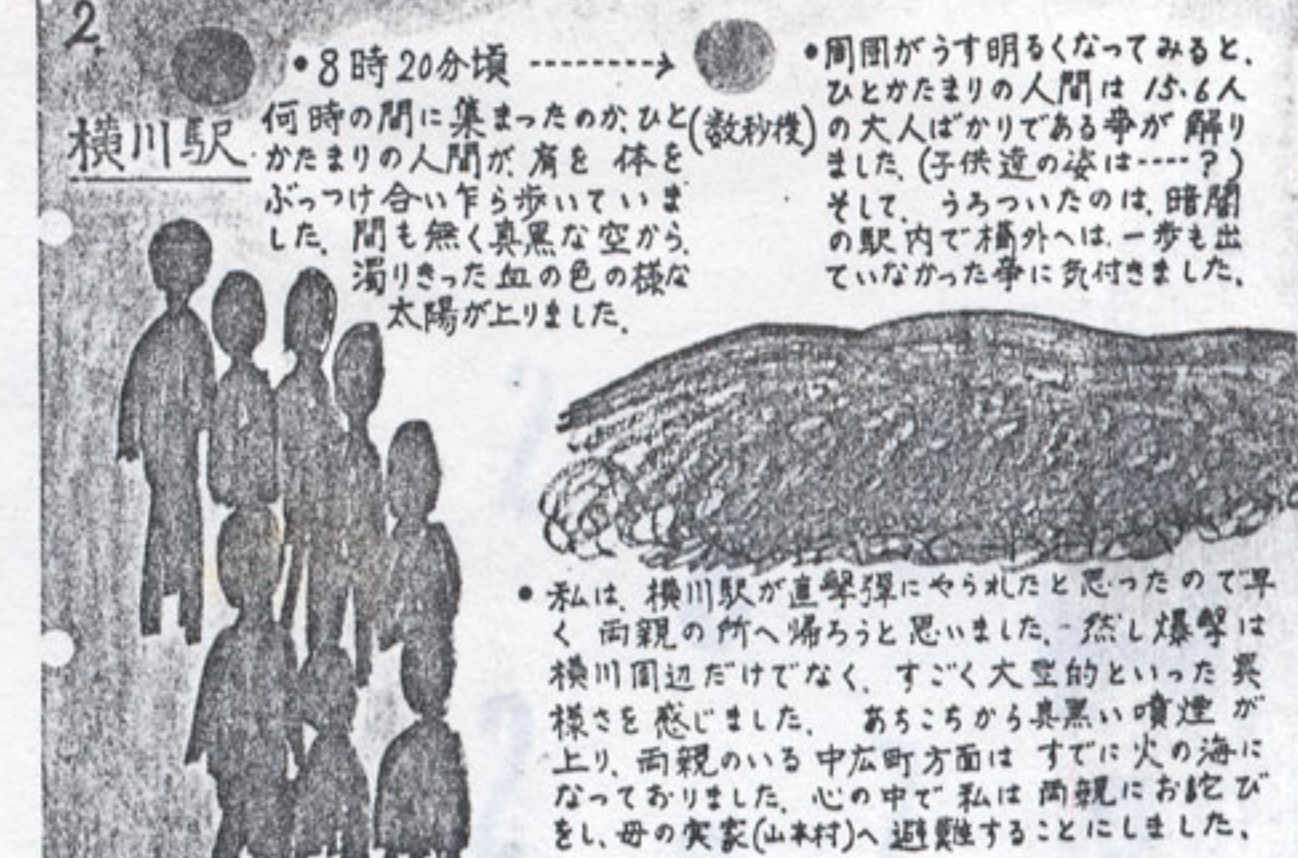 2.
横川駅
•8時20分頃 --------→
何時の間に集まったのか、ひと
かたまりの人間が、肩を 体を
ぶっつけ合い乍ら歩いていま
した。間も無く真黒な空から、
濁りきった血の色の様な
太陽が上りました。
(数秒後)
•周囲がうす明るくなってみると、
ひとかたまりの人間は 15.6人
の大人ばかりである事が 解り
ました。(子供達の姿は----?)
そして、うろついたのは、暗闇
の駅内で構外へは、一歩も出
ていなかった事に気付きました。
•私は、横川駅が直撃弾にやられたと思ったので早
く 両親の所へ帰ろうと思いました。-然し爆撃は
横川周辺だけでなく、すごく大型的といった異
様さを感じました。 あちこちから真黒い噴煙が
上り、両親のいる中広町方面は すでに火の海に
なっておりました。心の中で 私は 両親にお詫び
をし、母の実家(山本村)へ避難することにしました。